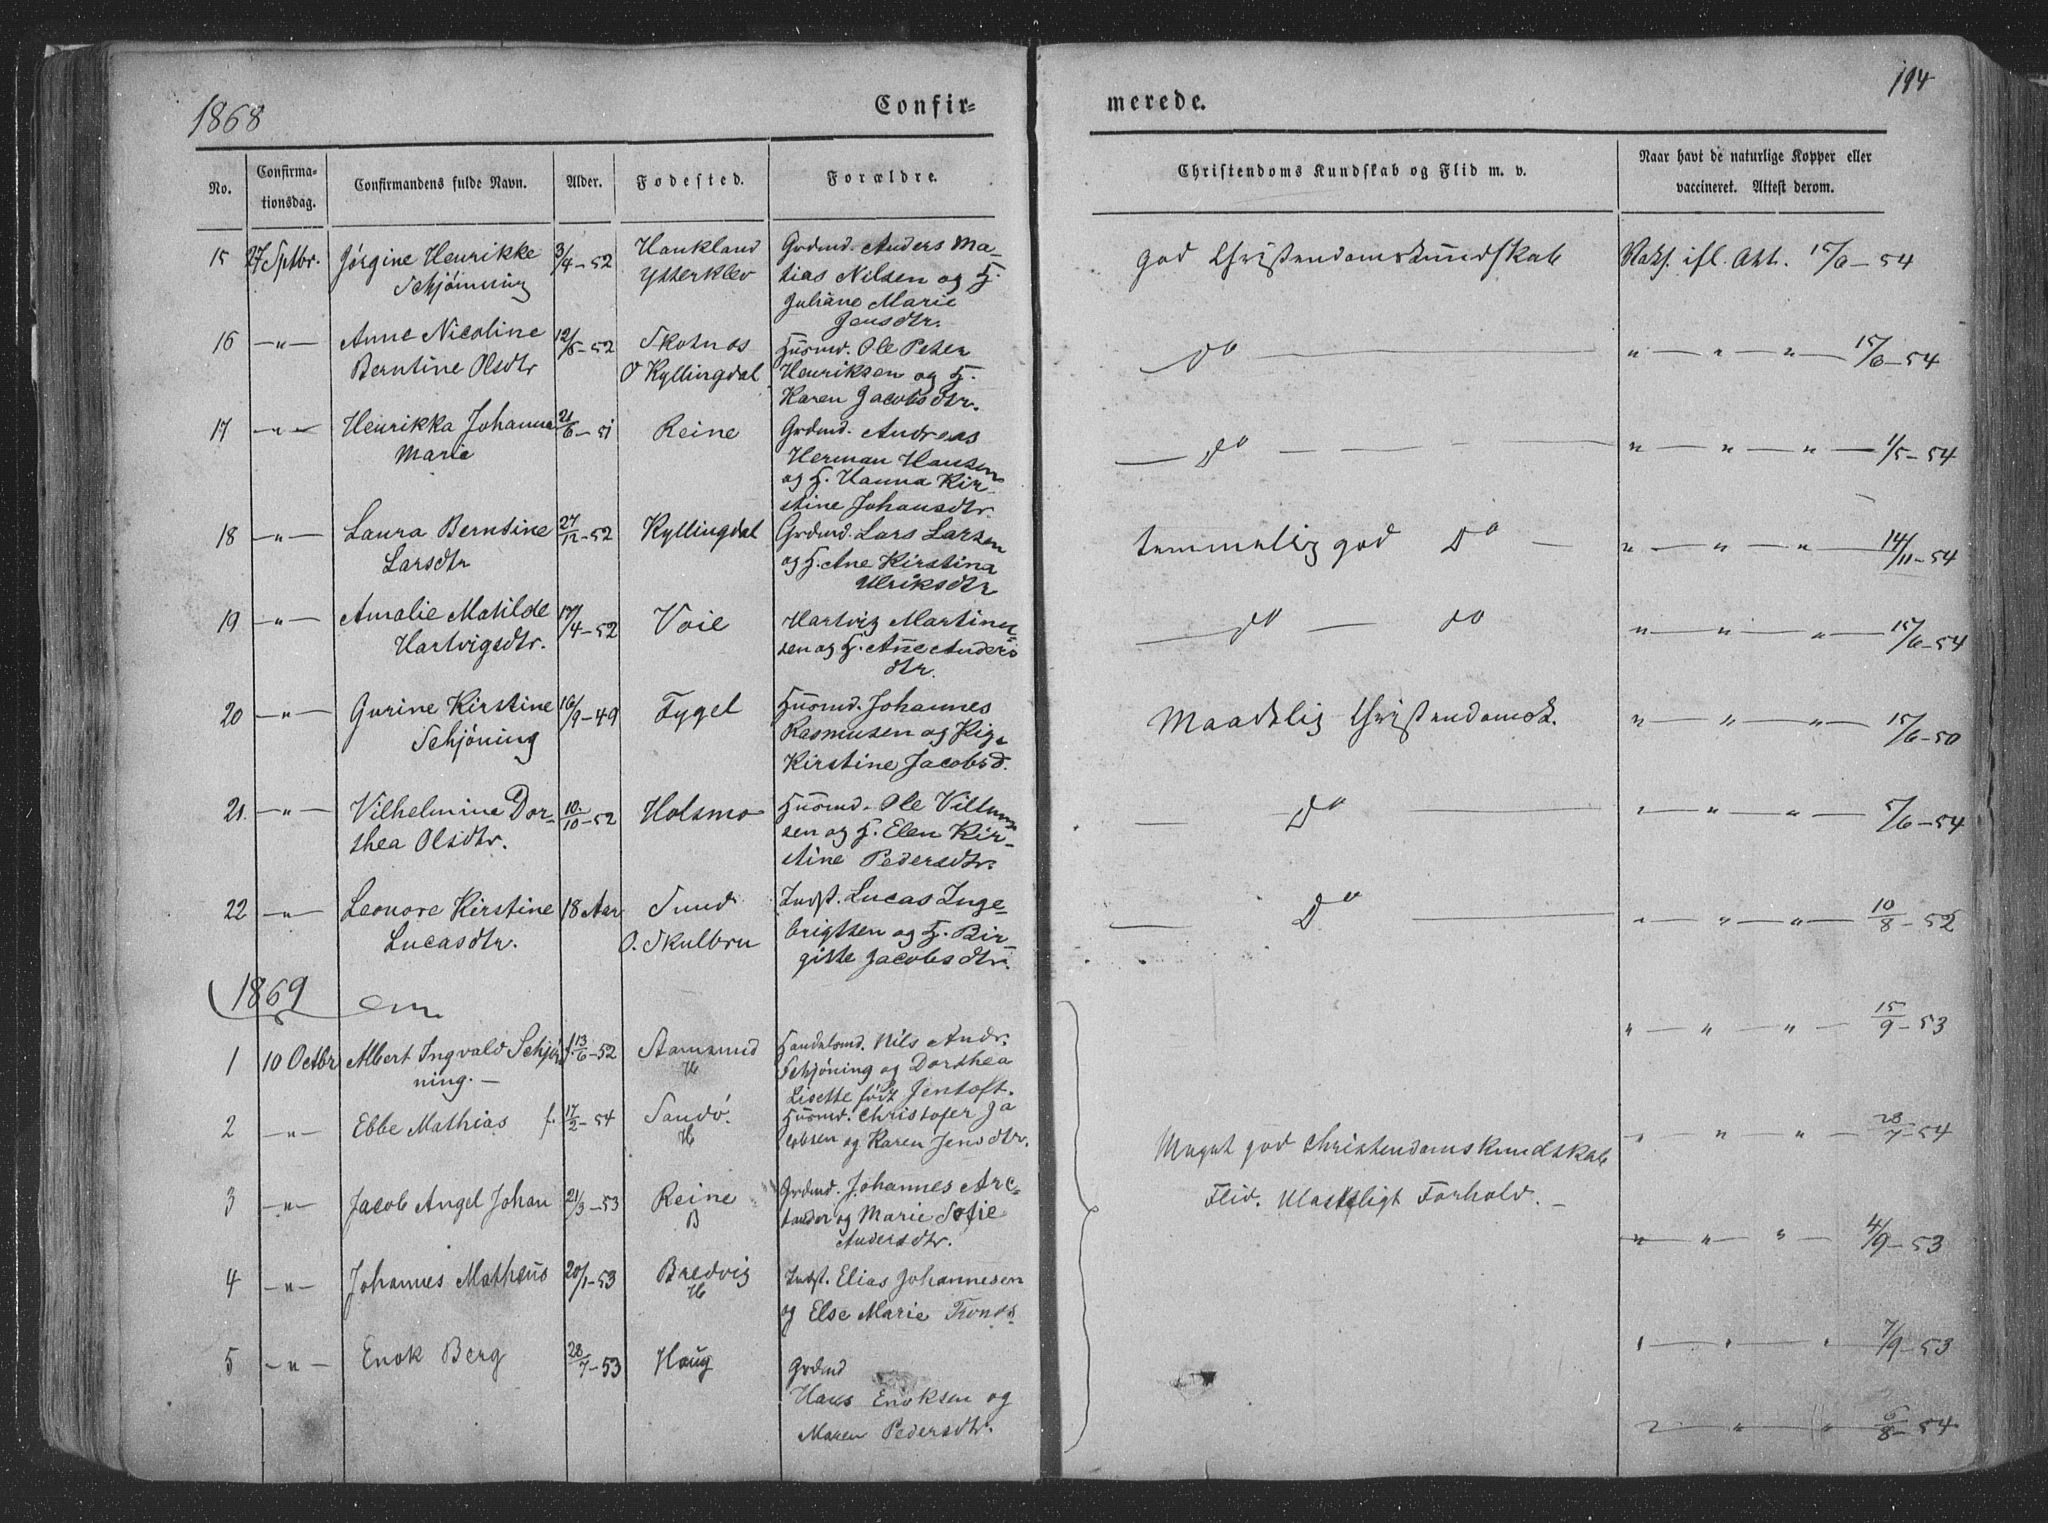 194
1868
Confir-
merede.
No.
Confirma-
tionsdag.
Confirmandens fulde Navn.
Alder.
Fødested.
Forældre.
Christendoms Kundskab og Flid m. v.
Naar havt de naturlige Kopper eller
vaccineret. Attest derom.
15 27 Sptbr. Jørgine Henrikke 3/4-52 Haukland Grdmd. Anders Ma- god Christendomskundskab Vaks. ifl. Att. 15/6-54
Schjønning Ytterklev tias Nilsen og H.
Juliane Marie
Jensdtr.
16 -"- Anne Nicoline 12/5-52 Skotnes Husmd. Ole Peter do " " " 15/6-54
Berntine Olsdtr O Kyllingdal Henriksen og H.
Karen Jacobsdtr.
17 -"- Henrikka Johanna 21/6-51 Reine Grdmd. Andreas do " " " 1/5-54
Marie Herman Hansen
og H. Hanna Kir-
stine Johansdtr.
18 -"- Laura Berntine 27/12-52 Kyllingdal Grdmd. Lars Larsen temmelig god Do " " " 14/11-54
Larsdtr og H. Ane Kirstina
Ulriksdtr
19 -"- Amalie Matilde 17/4-52 Voie Hartvig Martinu- do do " " " 15/6-54
Hartvigsdtr. sen og H. Ane Anders
dtr.
20 -"- Gurine Kirstine 16/9-49 Fygel Husmd. Johannes Maadelig Christendomsk. " " " 15/6-50
Schjøning Rasmusen og Pig.
Kirstine Jacobsd.
21. -"- Vilhelmine Dor- 10/10-52 Holsmo Husmd. Ole Villum do " " " 5/6-54
thea Olsdtr. sen og H. Elen Kir-
stine Pedersdtr.
22 -"- Leonore Kirstine 18 Aar Sund Indst. Lucas Inge- Do " " " 10/8-52
Lucasdtr. O. Skulbru brigtsen og H. Bir-
gitte Jacobsdtr.
1869
1 10 Octbr Albert Ingvald Schjøn f. 13/6-52 Stamsund Handelsmd. Nils Andr. " " " 15/9-53
ning.- H Schjøning og Dorthea
Lisette født Jentoft.
2 -"- Ebbe Mathias f. 17/2-54 Sandø. Husmd. Christofer Ja " " " 28/7-54
H cobsen og Karen Jensdtr.
Meget god Christendomskundskab
3 -"- Jacob Angel Johan 21/3-53 Reine Grdmd. Johannes Arc- Flid. Ulasteligt Forhold.-
B tander og Marie Sofie
Andersdtr. " " " 4/9-53
4 -"- Johannes Matheus 20/1-53 Bredvig Indst. Elias Johannesen
H og Else Marie Tronds.
" " " 7/9-53
5 -"- Enok Berg 28/7-53 Haug Grdmd
Hans Enoksen og
Maren Pedersdtr. " " " 6/8-54